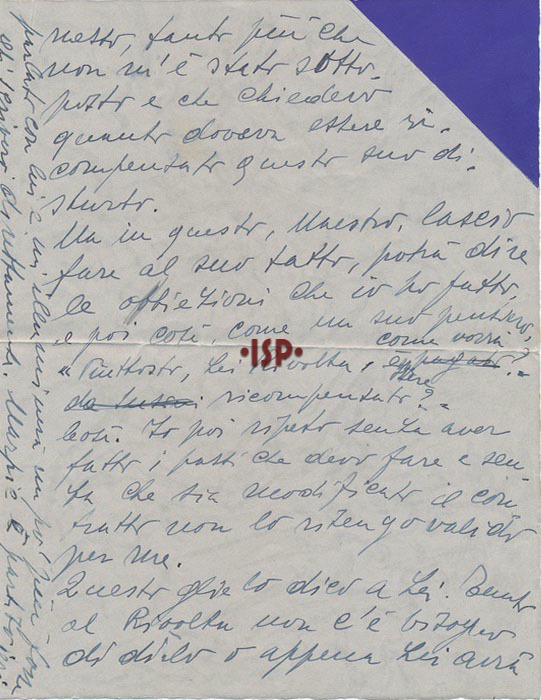 messo, tanto più che
non m'è stato sotto-
posto e che chiedevo
quanto doveva essere ri-
compensato questo suo di-
sturbo.
Ma in questo, Maestro, lascio
fare al suo tatto, potrà dire
le obbiezioni che io ho fatto,
e poi così, come un suo pensiero,
come vorrà
"Piuttosto, Lei Rivolta, ?"
essere
ricompensato?"
Così. Io poi ripeto senza aver
fatto i patti che devo fare e sen
za che sia modificato il con
tratto non lo ritengo valido
per me.
Questo glielo dico a Lei.
al Rivolta non c'è bisogno
di dirlo o appena Lei avrà
parlato con lui e mi illuminerà un po'
chi scriverò direttamente. Marpic è
•ISP•